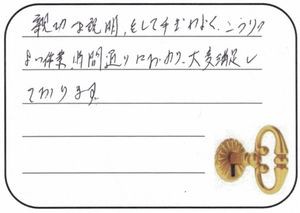 親切な説明、そして手ぎわよく、こうりつ
よい作業、時間通りにおわり、大変満足し
ております。